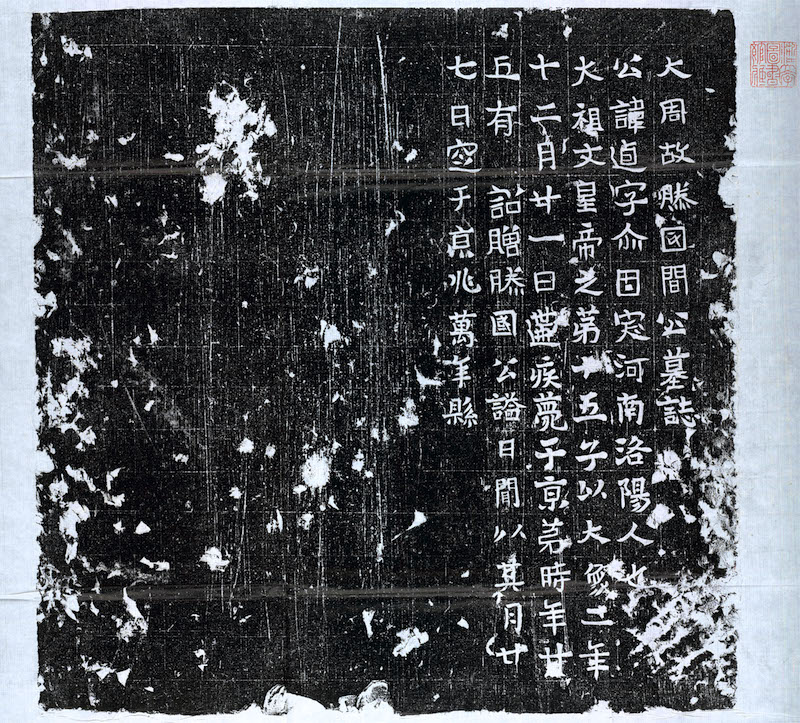 大周故滕國間公墓誌
公諱逌字尒固突河南洛陽人也
大祖文皇帝之第十五子以大象二年
十二月廿一日遘疾薨于京苐時年廿
五有 詔贈滕國公謚曰間以其月廿
七日窆于京兆萬年縣